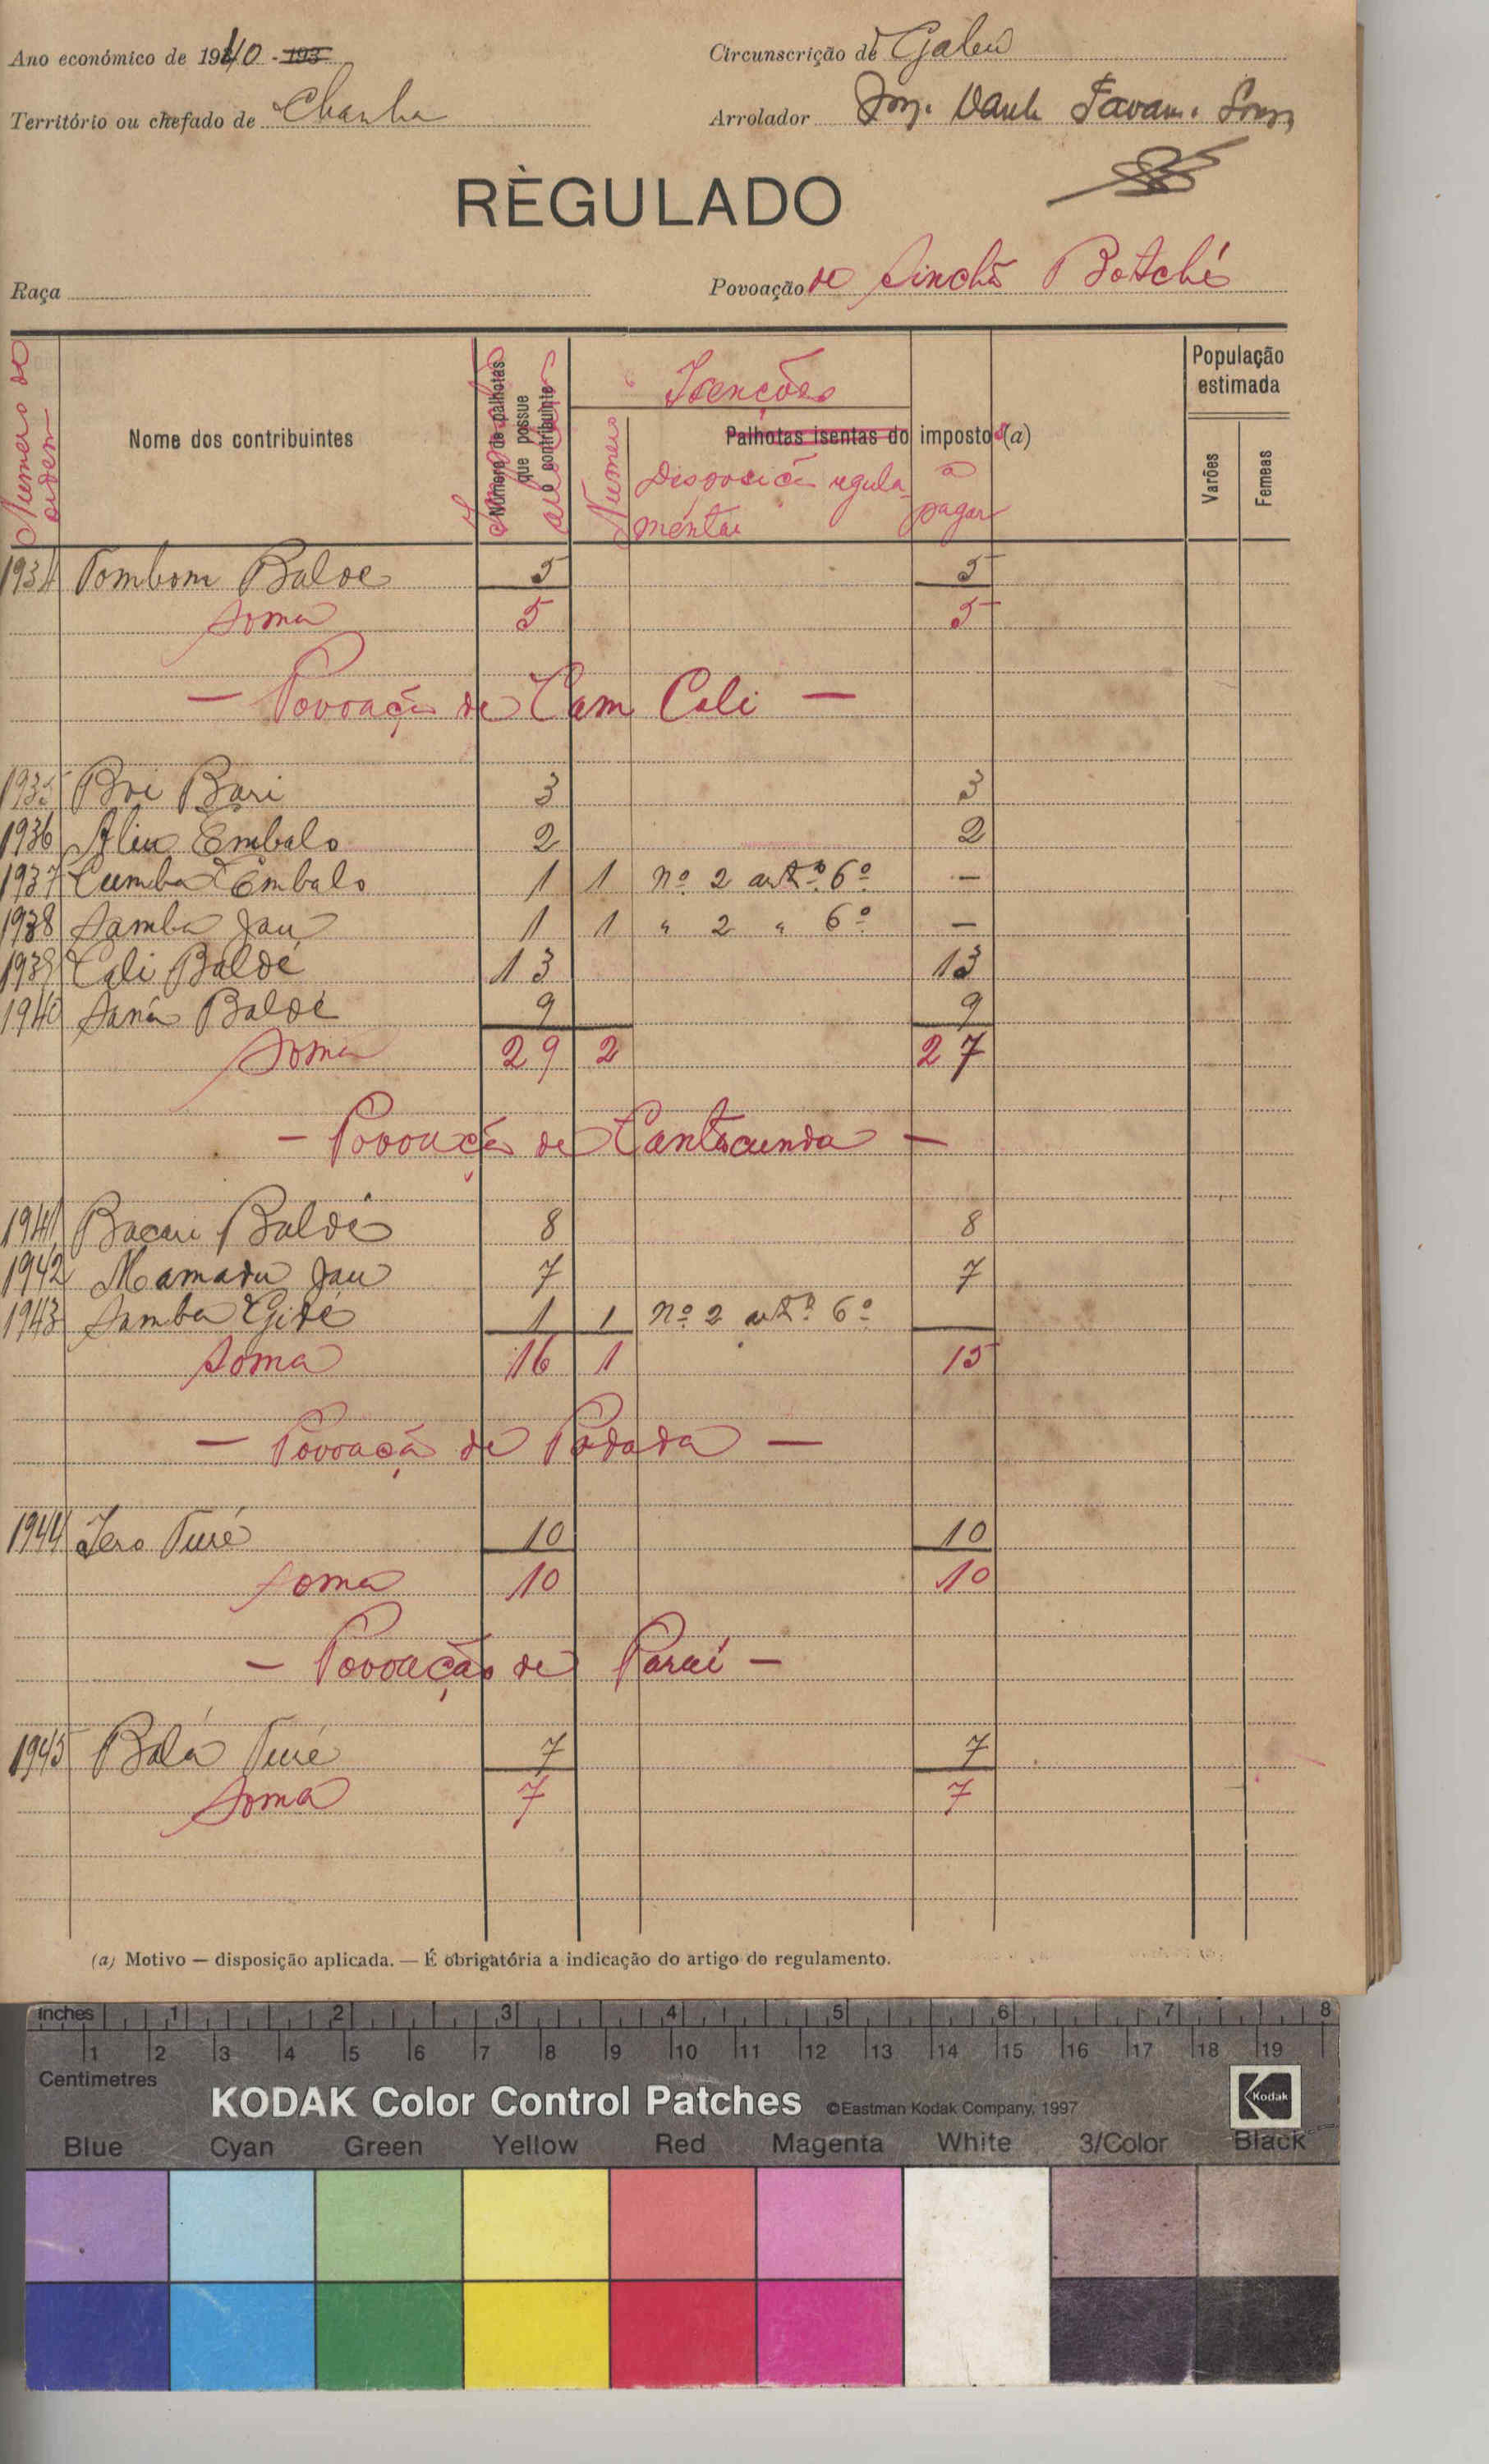 Ano económico de 1940 - 193
Circunscrição de Gabu
Território ou chefado de Chanha
Arrolador
RÈGULADO
Raça
Povoação de Sinchã Botché
Numero de ordem
Nome dos contribuintes
Número de palhotas que possue o contribuinte
Isenções
Numero
Palhotas isentas do impostos (a)
Disposição regulamentar
a pagar
População estimada
Varões
Femeas
1934 Tombom Balde 5 5
Soma 5 5
— Povoação de Tam Cali —
1935 Boi Bari 3 3
1936 Aliu Embalo 2 2
1937 Cumba Embalo 1 1 nº 2 artº 6º —
1938 Samba Jau 1 1 " 2 " 6º —
1939 Cali Baldé 13 13
1940 Saná Baldé 9 9
Soma 29 2 27
— Povoação de Cantacunda —
1941 Bacari Baldé 8 8
1942 Mamadu Jau 7 7
1943 Samba Gidé 1 1 nº 2 artº 6º
Soma 16 1 15
— Povoação de Padada —
1944 Iero Turé 10 10
Soma 10 10
— Povoação de Paraí —
1945 Balá Turé 7 7
Soma 7 7
(a) Motivo — disposição aplicada. — É obrigatória a indicação do artigo do regulamento.
inches 1 2 3 4 5 6 7 8
1 2 3 4 5 6 7 8 9 10 11 12 13 14 15 16 17 18 19
Centimetres
KODAK Color Control Patches ©Eastman Kodak Company, 1997 Kodak
Blue Cyan Green Yellow Red Magenta White 3/Color Black